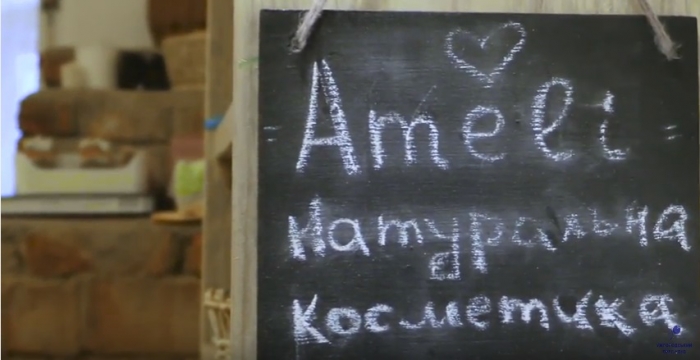 Ameli
Натуральна
косметика